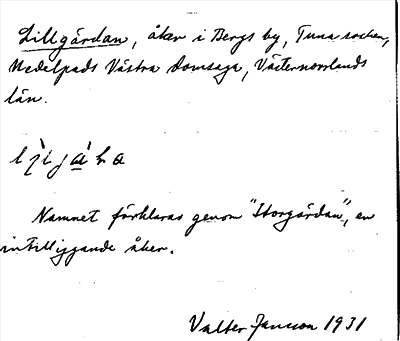 Lillgärdan, åker i Bergs by, Tuna socken,
Medelpads Västra domsaga, Västernorrlands
län.
Namnet förklaras genom "Storgärdan", en
intilliggande åker.
Valter Jansson 1931